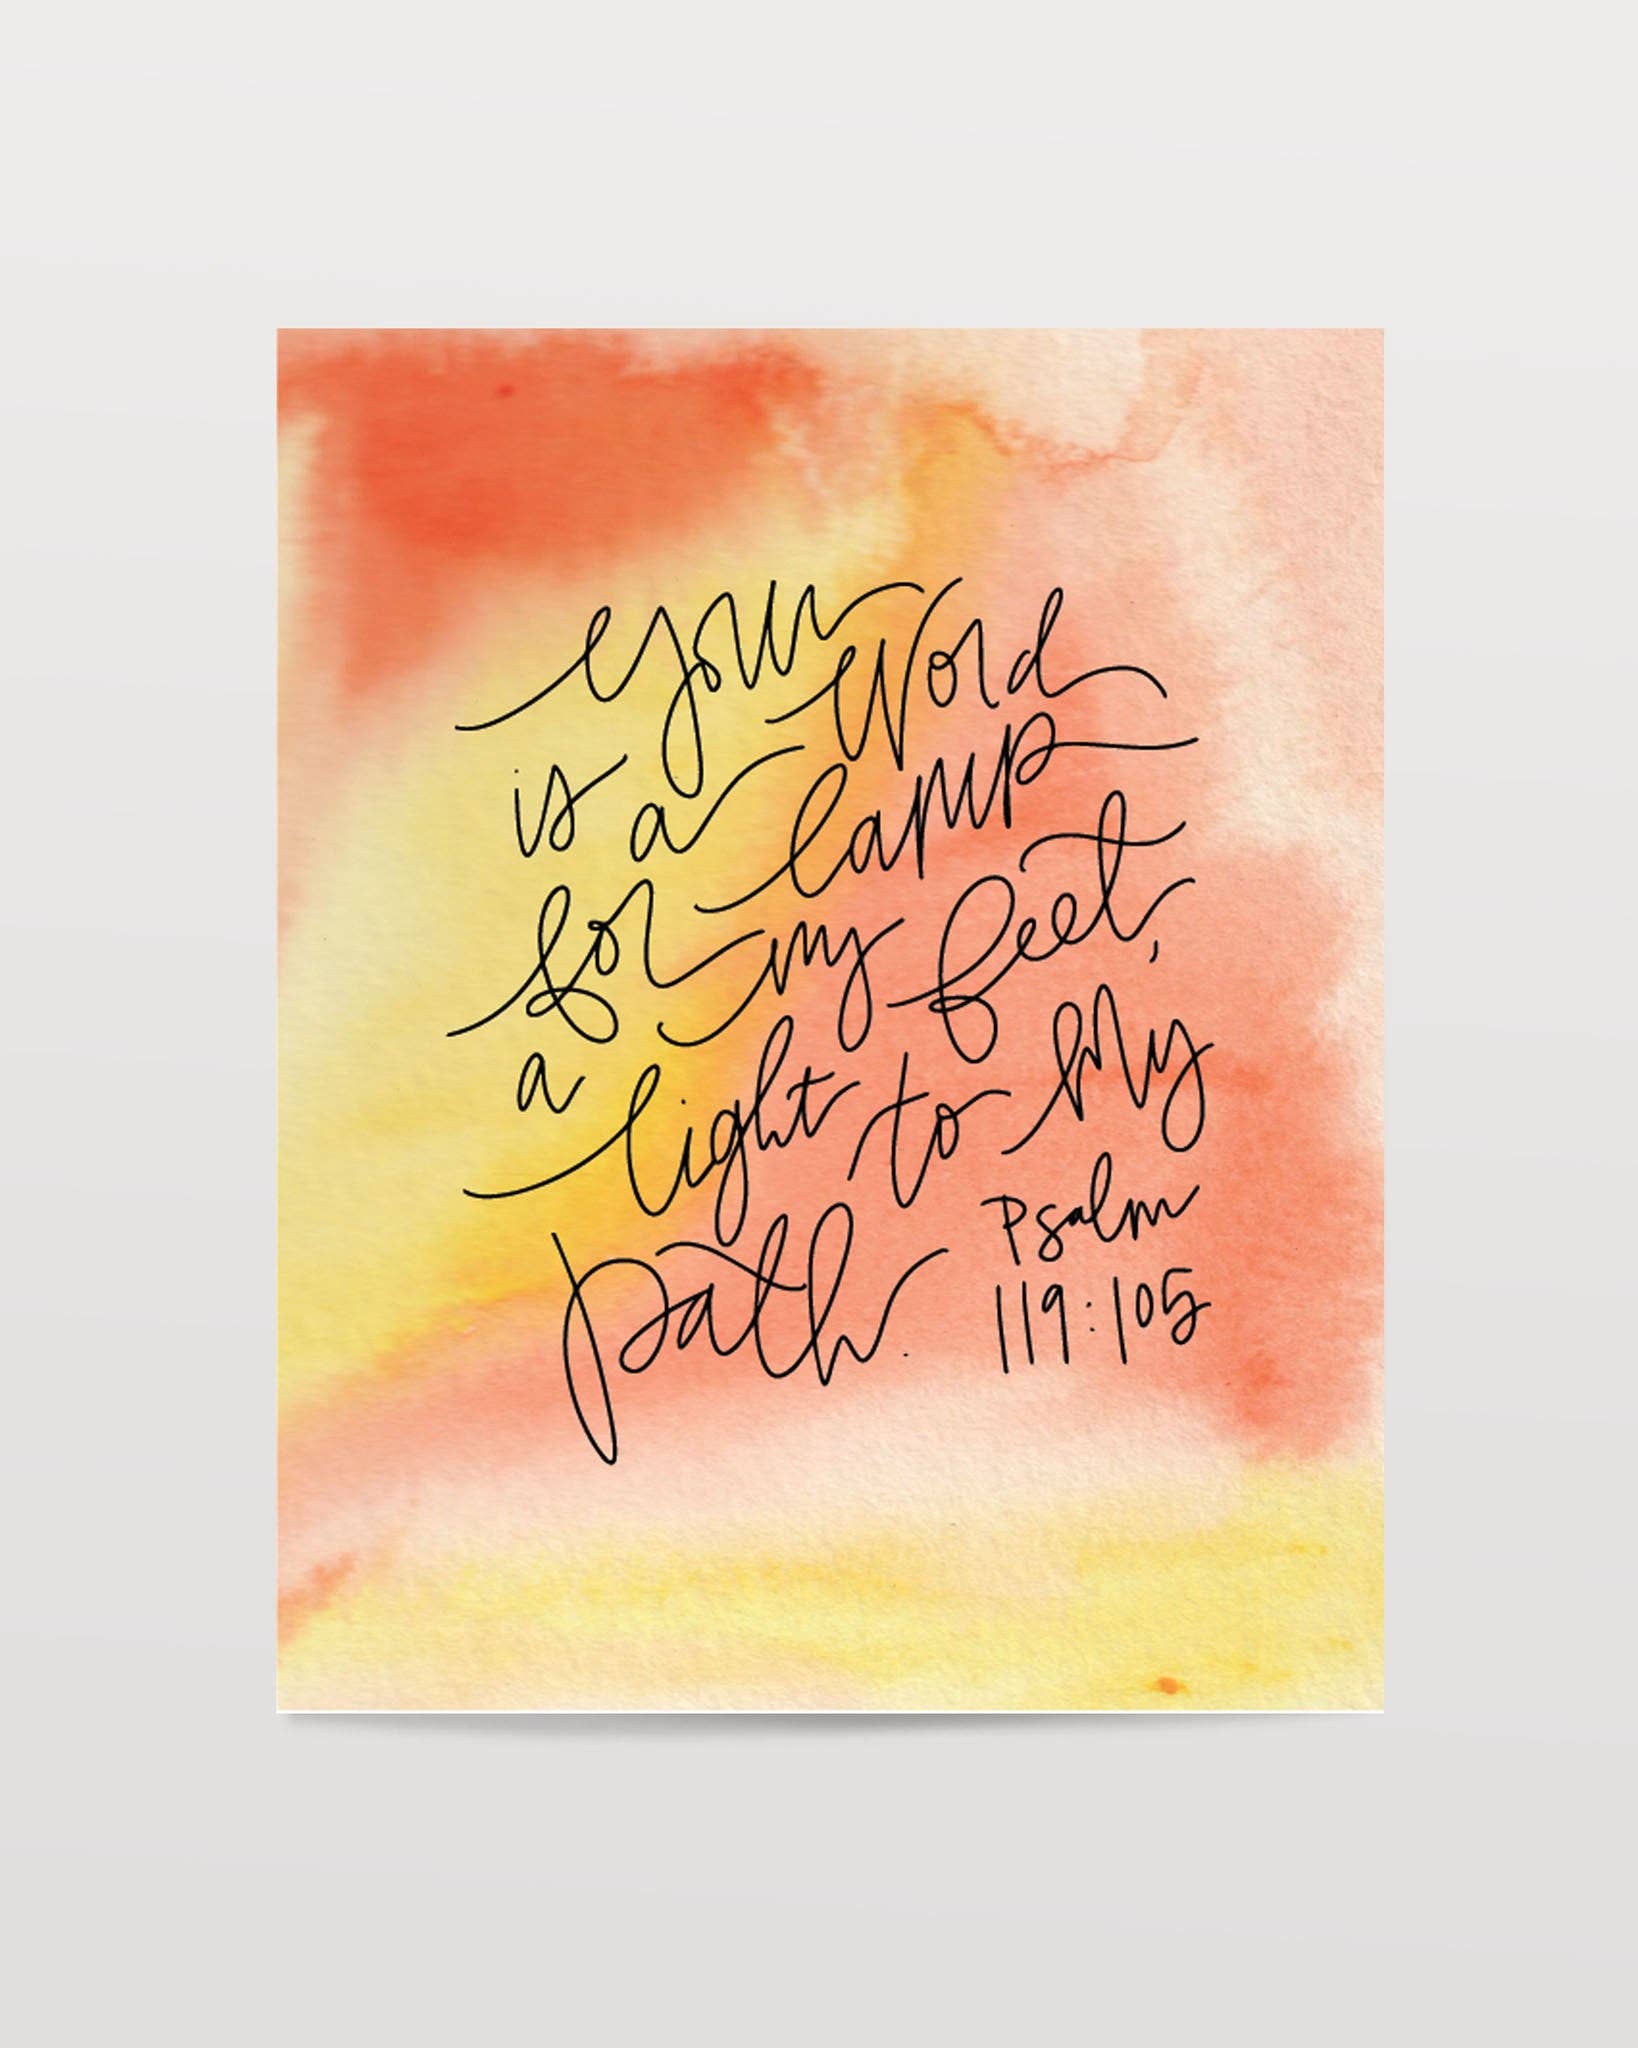 your word
is a lamp
for my feet,
a light to my
path.
Psalm
119:105